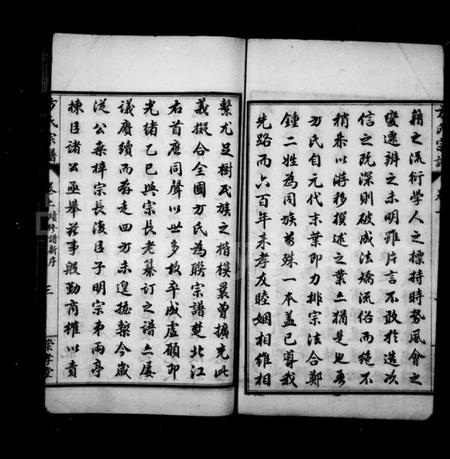 籍之流衍學人之標持時勢風會之
變遷辨之未明雖片言不敢於造次
信之既深則破成法矯流俗而絕不
稍奉以游移撰述之業亦猶是也吾
方氏自元代末葉即力排宗法合鄭
鍾二姓為同族萬殊一本蓋已導我
先路而六百年來孝友睦婣相維相
繫尤足樹氏族之楷模曩曾擴充此
義擬合全國方氏為聯宗譜楚北江
右首應同聲以世多故卒成虛願即
光緒乙巳與宗長老纂訂之譜亦屢
議賡續而荏苒四方未遑握槧今歲
從公桑梓宗長浚臣子明宗弟雨亭
棟臣諸公亟舉茲事殷勤商榷以責
方氏宗譜
卷上
續修譜新序
三